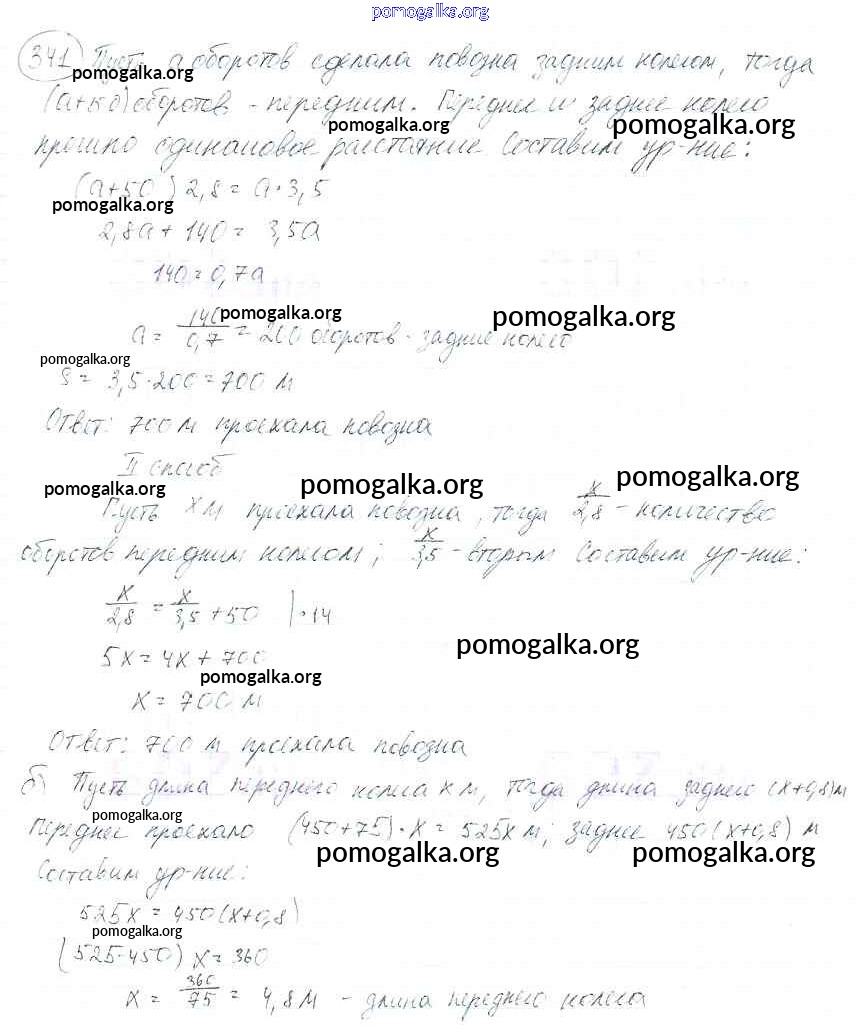 pomogalka.org
341 Пусть а оборотов сделала повозка задним колесом, тогда
pomogalka.org
(а+50) оборотов - передним. Переднее и заднее колесо
pomogalka.org pomogalka.org
прошло одинаковое расстояние Составим ур-ние:
(а+50) 2,8 = а·3,5
pomogalka.org
2,8а + 140 = 3,5а
140 = 0,7а
pomogalka.org pomogalka.org
а = 140/0,7 = 200 оборотов - задние колесо
pomogalka.org
S = 3,5·200 = 700 м
Ответ: 700 м проехала повозка
II способ
pomogalka.org pomogalka.org pomogalka.org
Пусть х м проехала повозка, тогда х/2,8 - количество
оборотов передним колесом; х/3,5 - вторым Составим ур-ние:
х/2,8 = х/3,5 + 50 |·14
5х = 4х + 700
pomogalka.org
pomogalka.org
х = 700 м
Ответ: 700 м проехала повозка
б) Пусть длина переднего колеса х м, тогда длина заднего (х+0,8) м
pomogalka.org
Переднее проехало (450+75)·х = 525х м; заднее 450(х+0,8) м
pomogalka.org pomogalka.org
Составим ур-ние:
525х = 450(х+0,8)
pomogalka.org
(525-450) х = 360
х = 360/75 = 4,8 м - длина переднего колеса